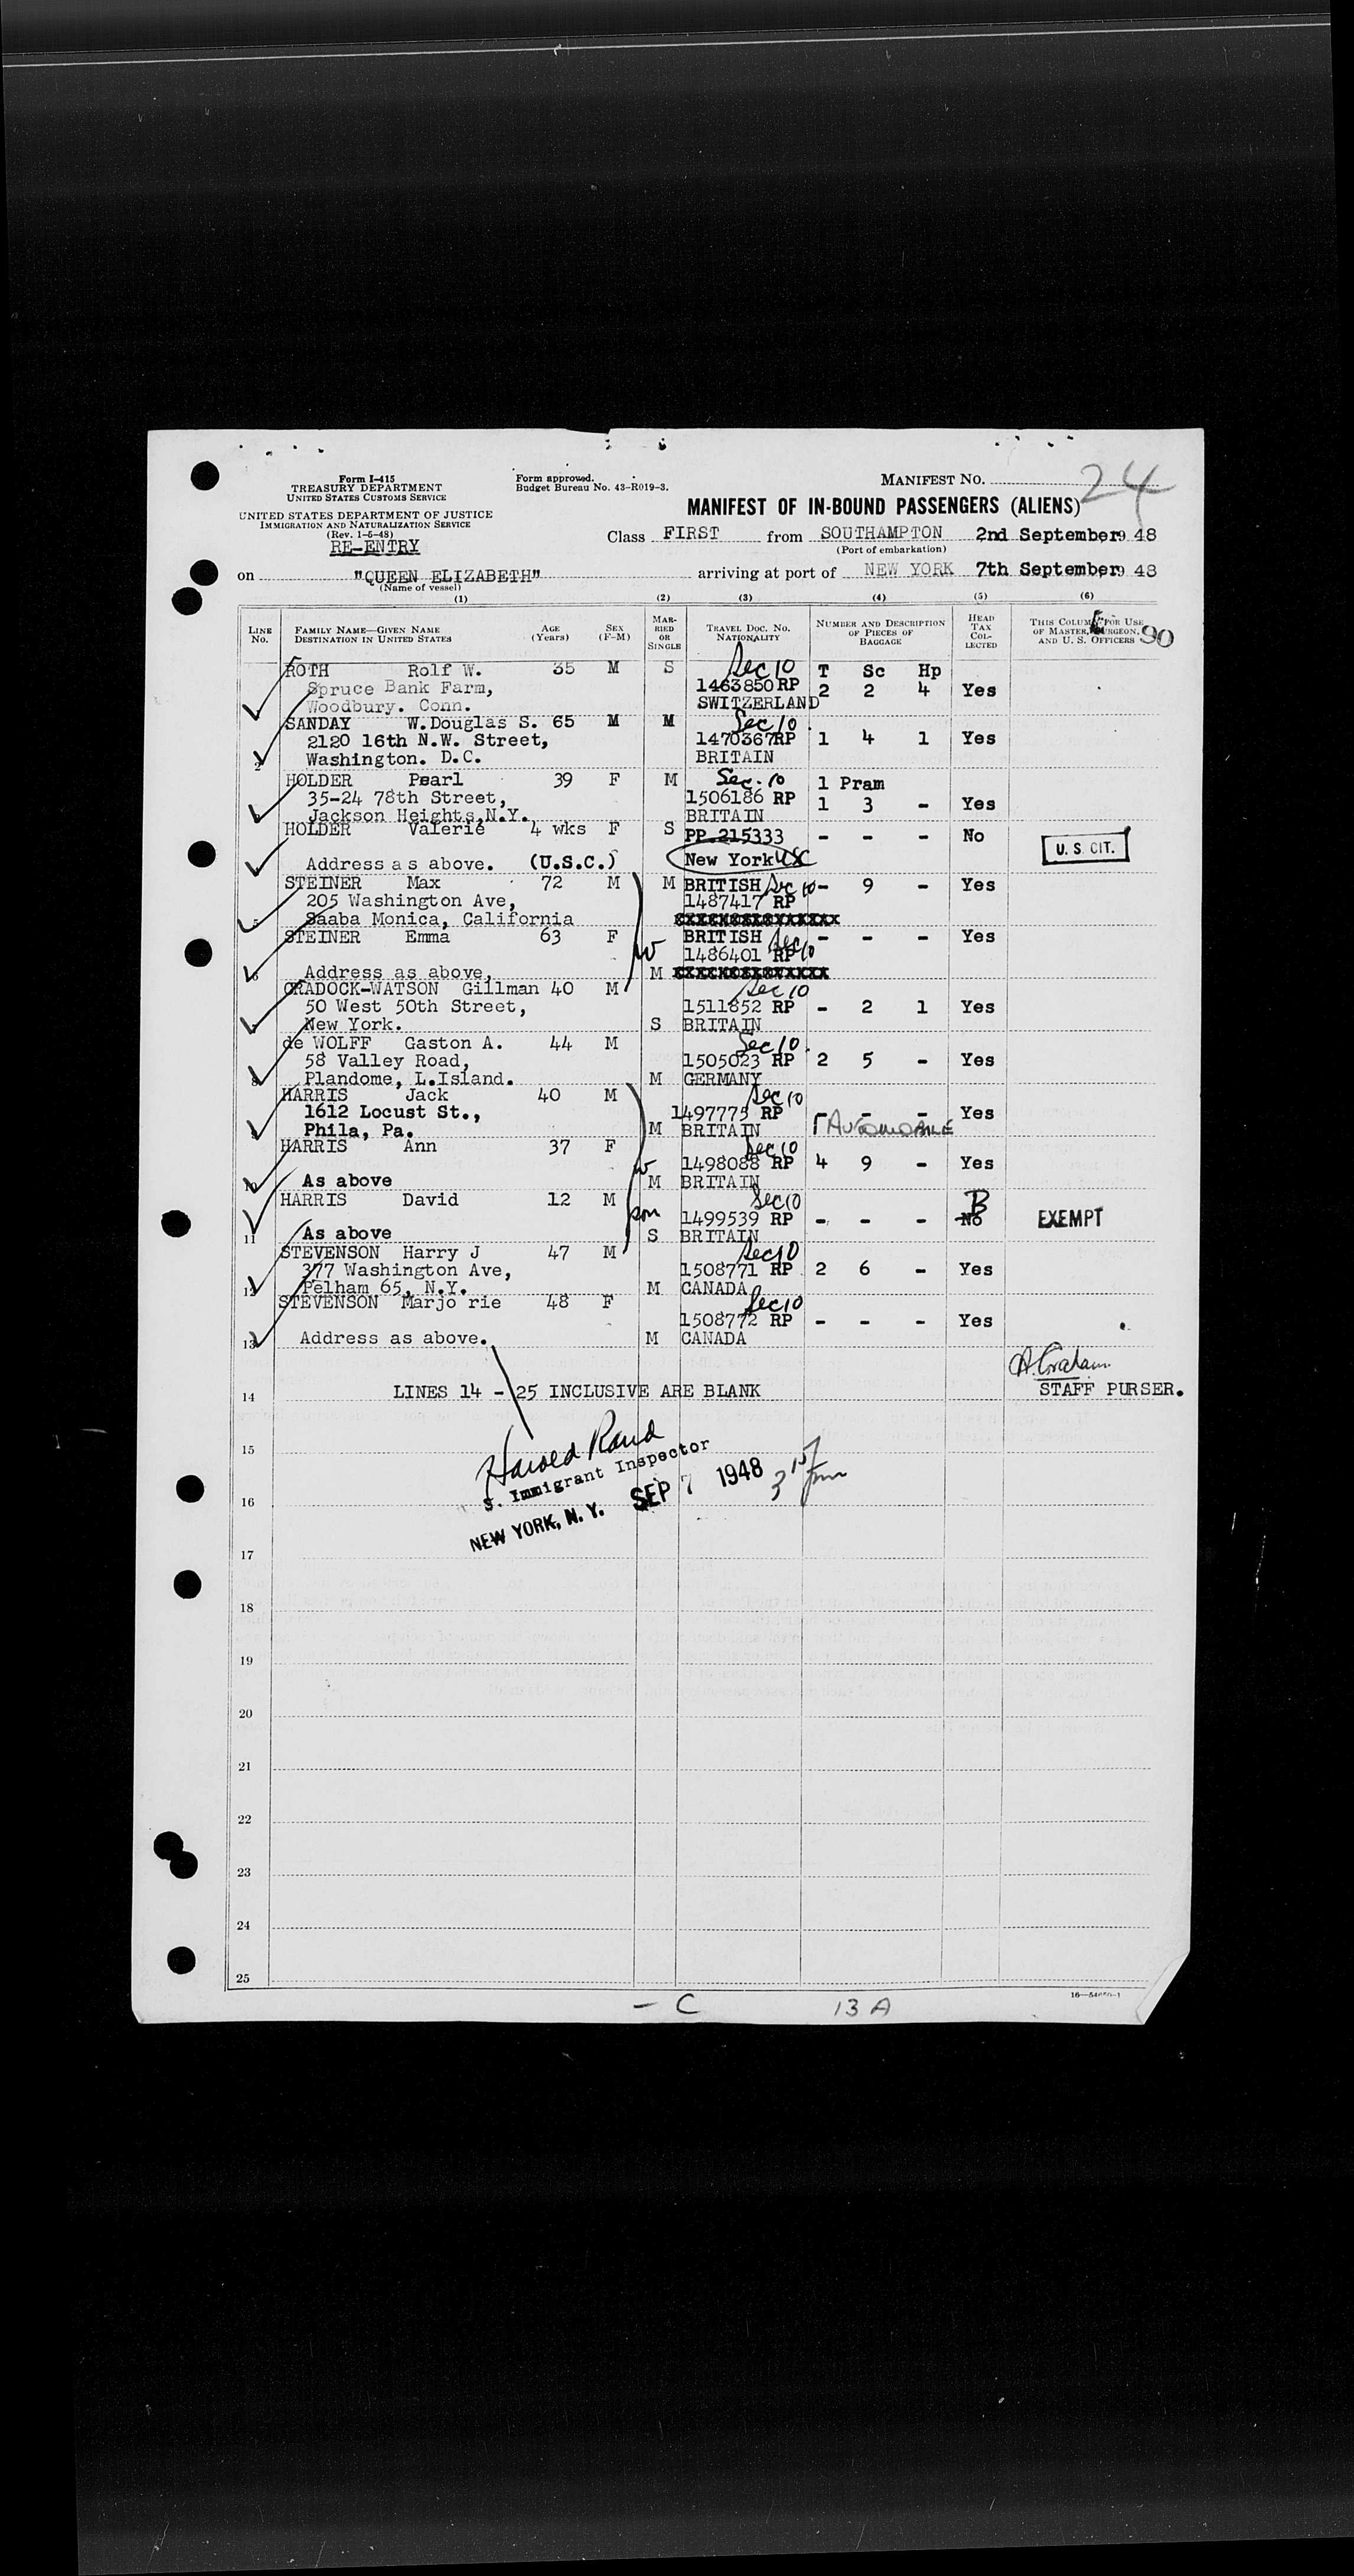 24
Form I-415
TREASURY DEPARTMENT
UNITED STATES CUSTOMS SERVICE
Form approved.
Budget Bureau No. 43-R019-3.
MANIFEST NO.
UNITED STATES DEPARTMENT OF JUSTICE
IMMIGRATION AND NATURALIZATION SERVICE
(Rev. 1-6-48)
RE-ENTRY
MANIFEST OF IN-BOUND PASSENGERS (ALIENS)
Class FIRST from SOUTHAMPTON 2nd September, 1948
(Port of embarkation)
on "QUEEN ELIZABETH" arriving at port of NEW YORK 7th September, 1948
(Name of vessel)
(1) (2) (3) (4) (5) (6)
LINE No. FAMILY NAME—GIVEN NAME DESTINATION IN UNITED STATES AGE (Years) SEX (F-M) MARRIED OR SINGLE TRAVEL DOC. NO. NATIONALITY NUMBER AND DESCRIPTION OF PIECES OF BAGGAGE HEAD TAX COLLECTED THIS COLUMN FOR USE OF MASTER, SURGEON, AND U. S. OFFICERS 90
ROTH Rolf W. 35 M S Sec 10 T Sc Hp
Spruce Bank Farm, 1463850 RP 2 2 4 Yes
Woodbury. Conn. SWITZERLAND
SANDAY W.Douglas S. 65 M M Sec 10
2120 16th N.W. Street, 1470367RP 1 4 1 Yes
2 Washington. D.C. BRITAIN
HOLDER Pearl 39 F M Sec. 10 1 Pram
35-24 78th Street, 1506186 RP 1 3 - Yes
Jackson Heights,N.Y. BRITAIN
HOLDER Valerie 4 wks F S PP 215333 - - - No
Address as above. (U.S.C.) New York USC U. S. CIT.
STEINER Max 72 M M BRITISH Sec 10 - 9 - Yes
205 Washington Ave, 1487417 RP
5 Saaba Monica, California
STEINER Emma 63 F W BRITISH Sec 10 - - - Yes
1486401 RP
6 Address as above, M
CRADOCK-WATSON Gillman 40 M Sec 10
50 West 50th Street, 1511852 RP - 2 1 Yes
7 New York. S BRITAIN
de WOLFF Gaston A. 44 M Sec 10.
58 Valley Road, 1505023 RP 2 5 - Yes
8 Plandome, L.Island. M GERMANY
HARRIS Jack 40 M Sec 10
1612 Locust St., 1497775 RP - - - Yes
9 Phila, Pa. M BRITAIN 1 AUTOMOBILE
HARRIS Ann 37 F Sec 10
W 1498088 RP 4 9 - Yes
10 As above M BRITAIN
HARRIS David 12 M Sec 10 B
son 1499539 RP - - - No EXEMPT
11 As above S BRITAIN
STEVENSON Harry J 47 M Sec 10
377 Washington Ave, 1508771 RP 2 6 - Yes
12 Pelham 65, N.Y. M CANADA
STEVENSON Marjo rie 48 F Sec 10
1508772 RP - - - Yes
13 Address as above. M CANADA
A. Graham
14 LINES 14 - 25 INCLUSIVE ARE BLANK STAFF PURSER.
15
Harold Rand
S. Immigrant Inspector
16
NEW YORK, N. Y. SEP 7 1948 3 15 pm
17
18
19
20
21
22
23
24
25
- C 13 A